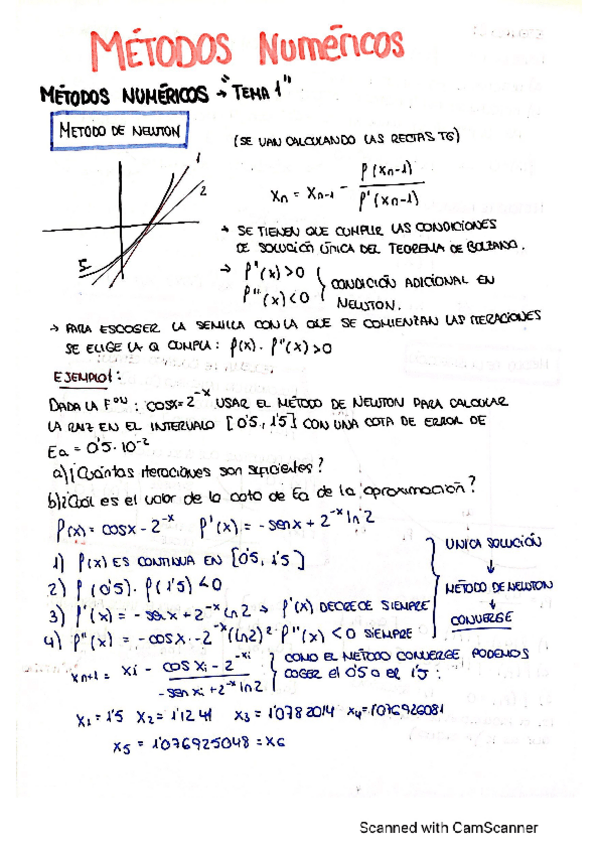 MÉTODOS Numéricos
MÉTODOS NUMÉRICOS → "TEMA 1"
METODO DE NEWTON
(SE VAN CALCULANDO LAS RECTAS TG)
1
2
Xn = Xn-1 - P(Xn-1) / P'(Xn-1)
→ SE TIENEN QUE CUMPLIR LAS CONDICIONES
DE SOLUCIÓN ÚNICA DEL TEOREMA DE BOLZANO.
→ P'(x)>0
P''(x)<0
CONDICIÓN ADICIONAL EN
NEWTON.
→ PARA ESCOGER LA SEMILLA CON LA QUE SE COMIENZAN LAS ITERACIONES
SE ELIGE LA Q CUMPLA: P(x). P''(x)>0
EJEMPLO1:
DADA LA Fᵒᵘ: COSX=2^-x USAR EL MÉTODO DE NEWTON PARA CALCULAR
LA RAIZ EN EL INTERVALO [0'5, 1'5] CON UNA COTA DE ERROR DE
Ea = 0'5·10^-2
a)¿Cuántas iteraciones son suficientes?
b)¿Cuál es el valor de la cota de Ea de la aproximación?
P(x)= cosx - 2^-x P'(x) = - senx + 2^-x ln 2
1) P(x) ES CONTINUA EN [0'5, 1'5]
2) P (0'5). P(1'5) <0
3) P'(x) = - senx+2^-x Ln2 → P'(x) DECRECE SIEMPRE
4) P''(x) = - cosx.-2^-x(ln2)² P''(x) <0 SIEMPRE
UNICA SOLUCIÓN
↓
MÉTODO DE NEWTON
↓
CONVERGE
Xn+1 = Xi - cos Xi - 2^-xi / -sen xi +2^-x ln2
COMO EL METODO CONVERGE PODEMOS
COGER el 0'5 o el 1'5:
X1=1'5 X2=1'1241 X3=1'0782014 X4=1'076926081
X5 = 1'076925048 = X6
Scanned with CamScanner